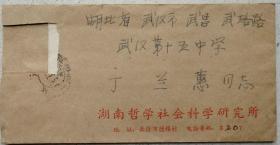 湖北省 武汉市 武昌 武珞路
武汉第十五中学
丁 兰 惠 同志
湖南哲学社会科学研究所
地 址：长沙市德雅村